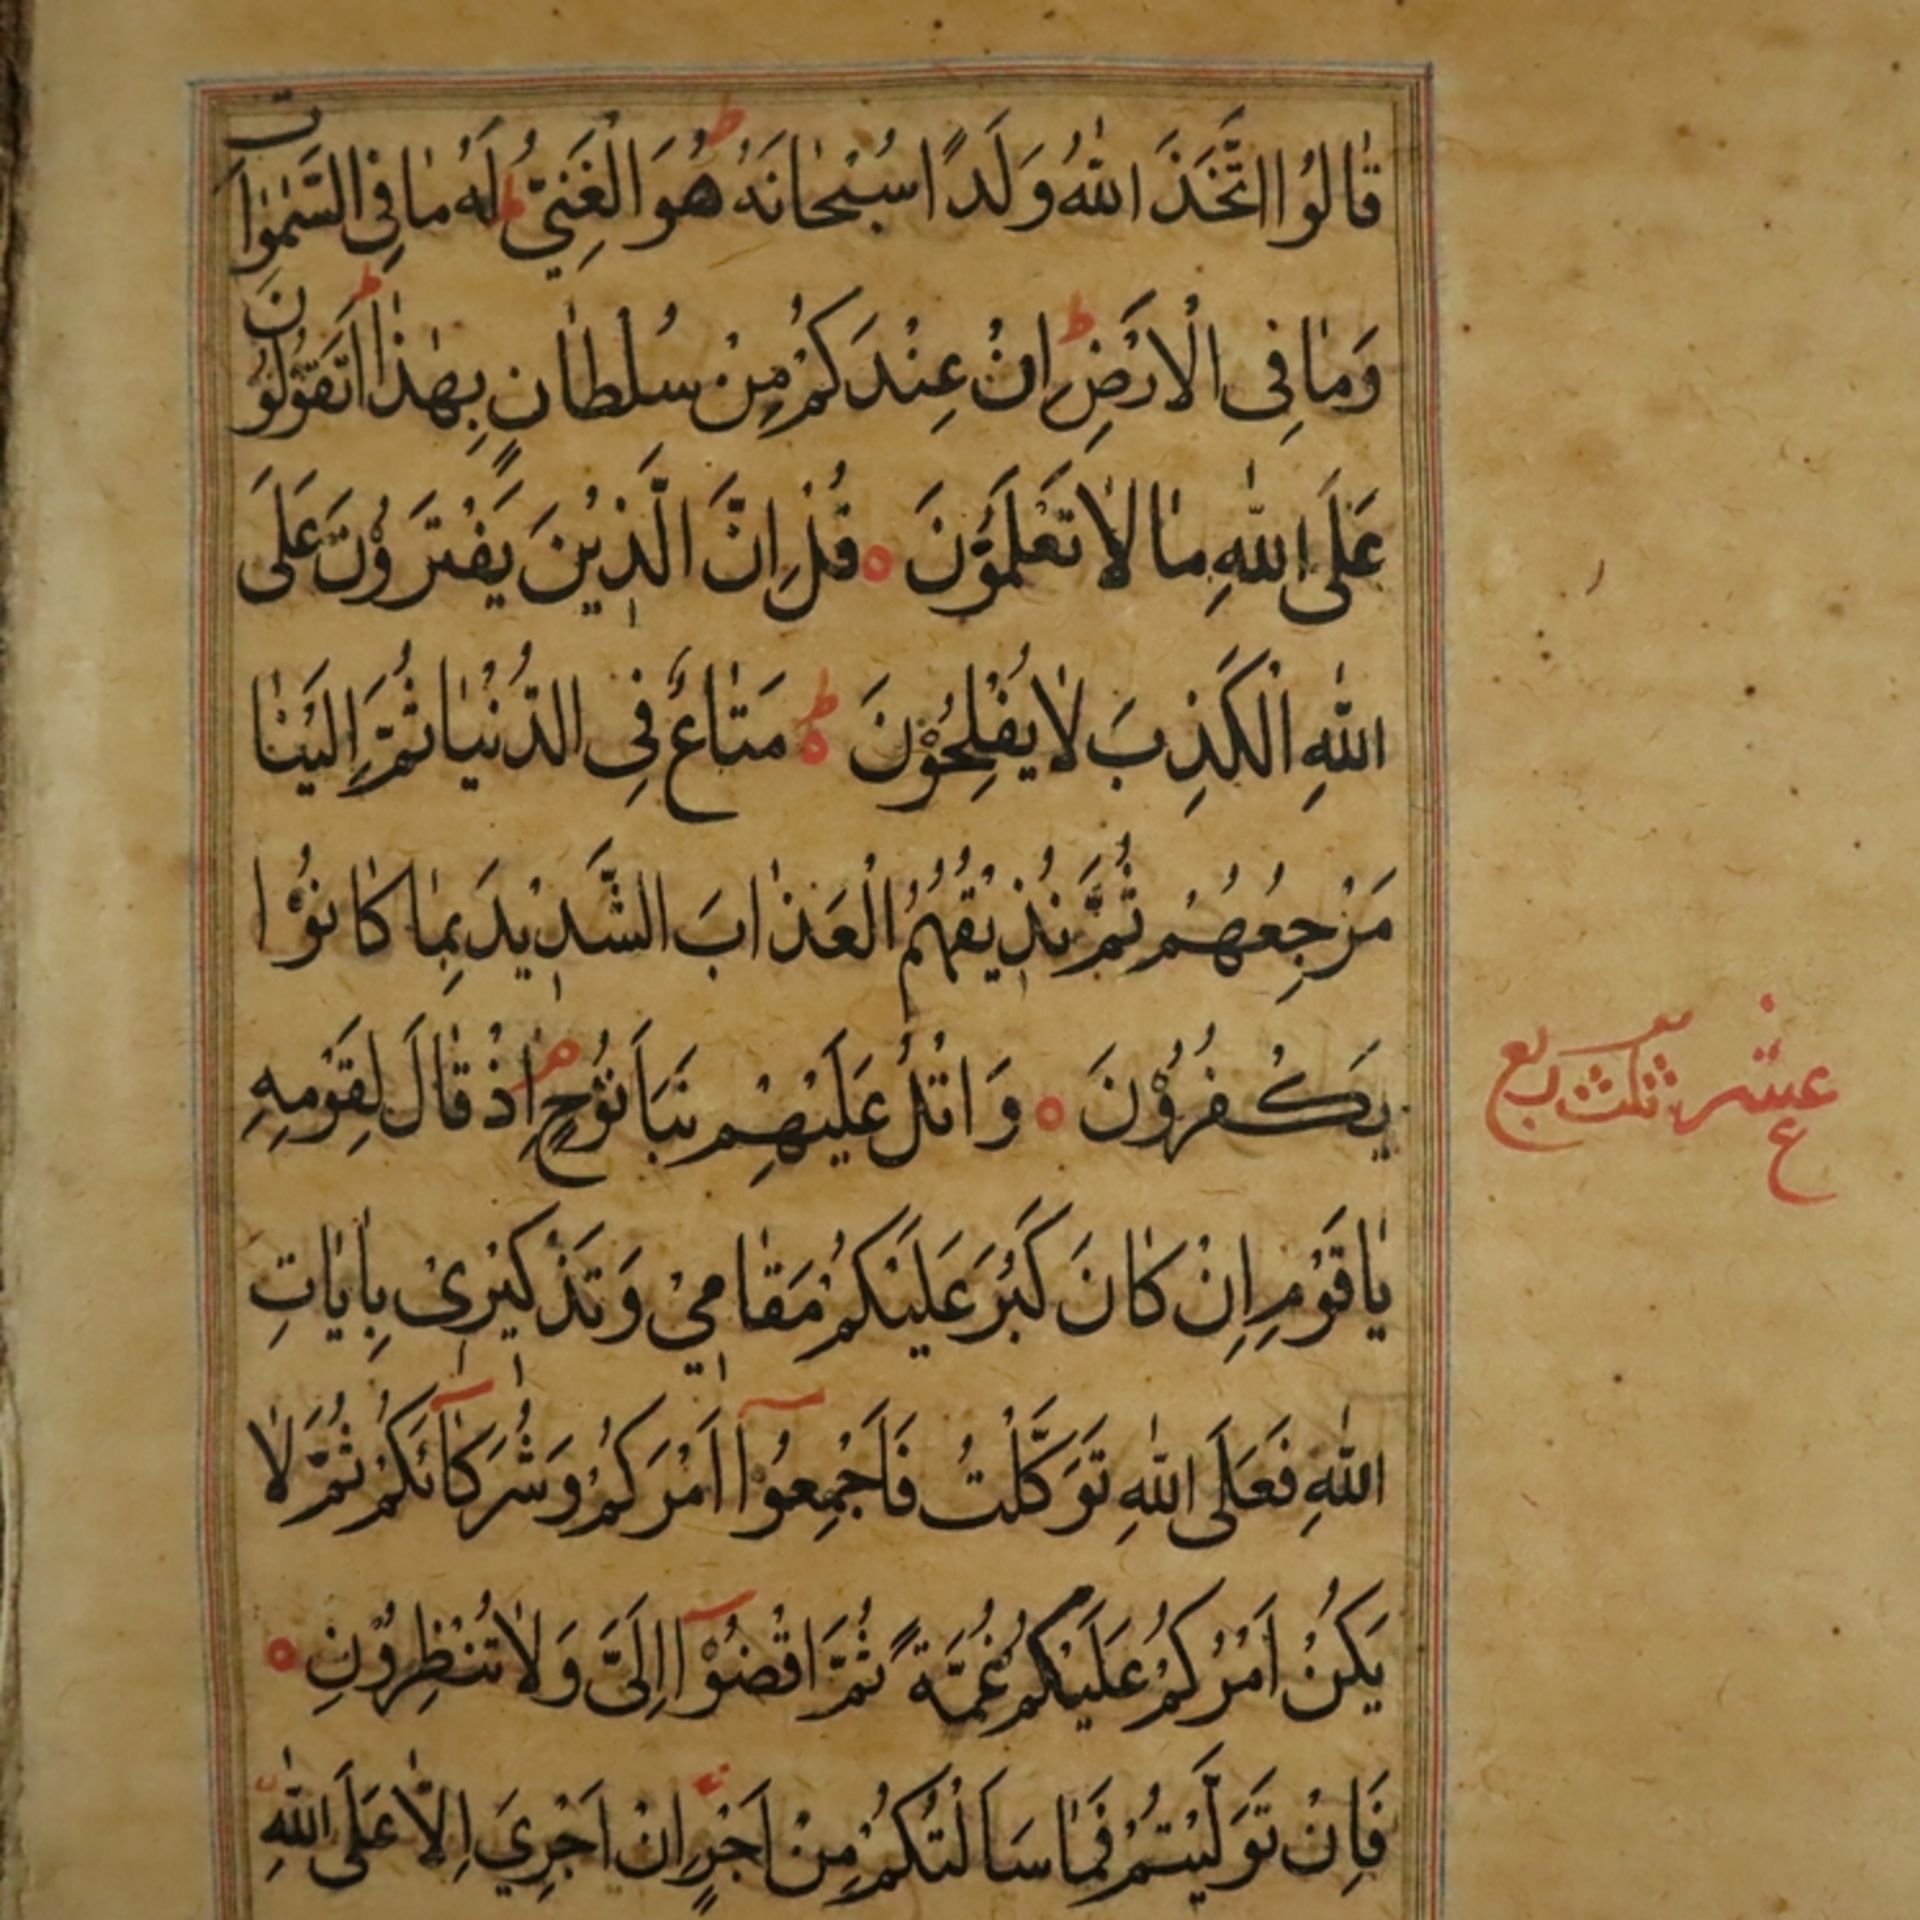 قٰالُوا اتَّخَذَ اللّٰهُ وَلَدًا سُبْحٰانَهُ ط هُوَ الْغَنِيُّ ط لَهُ مٰا فِى السَّمٰوٰاتِ
وَمٰا فِى الْاَرْضِ ط اِنْ عِنْدَكُمْ مِنْ سُلْطٰانٍ بِهٰذٰا ط اَتَقُوْلُوْنَ
عَلَى اللّٰهِ مٰا لٰا تَعْلَمُوْنَ ه قُلْ اِنَّ الَّذٖيْنَ يَفْتَرُوْنَ عَلَى
اللّٰهِ الْكَذِبَ لٰا يُفْلِحُوْنَ ه ط مَتٰاعٌ فِى الدُّنْيٰا ثُمَّ اِلَيْنٰا
مَرْجِعُهُمْ ثُمَّ نُذٖيْقُهُمُ الْعَذٰابَ الشَّدٖيْدَ بِمٰا كٰانُوْا
يَكْفُرُوْنَ ه وَاتْلُ عَلَيْهِمْ نَبَاَ نُوْحٍ م اِذْ قٰالَ لِقَوْمِهِ
عشر ثلث ربع
ع
يٰا قَوْمِ اِنْ كٰانَ كَبُرَ عَلَيْكُمْ مَقٰامٖيْ وَتَذْكٖيْرٖىْ بِاٰيٰاتِ
اللّٰهِ فَعَلَى اللّٰهِ تَوَكَّلْتُ فَاَجْمِعُوْٓا اَمْرَكُمْ وَشُرَكٰٓائَكُمْ ثُمَّ لٰا
يَكُنْ اَمْرُكُمْ عَلَيْكُمْ غُمَّةً ثُمَّ اقْضُوْٓا اِلَىَّ وَلٰا تُنْظِرُوْنِ ه
فَاِنْ تَوَلَّيْتُمْ فَمٰا سَاَلْتُكُمْ مِنْ اَجْرٍ اِنْ اَجْرِيَ اِلّٰا عَلَى اللّٰهِ